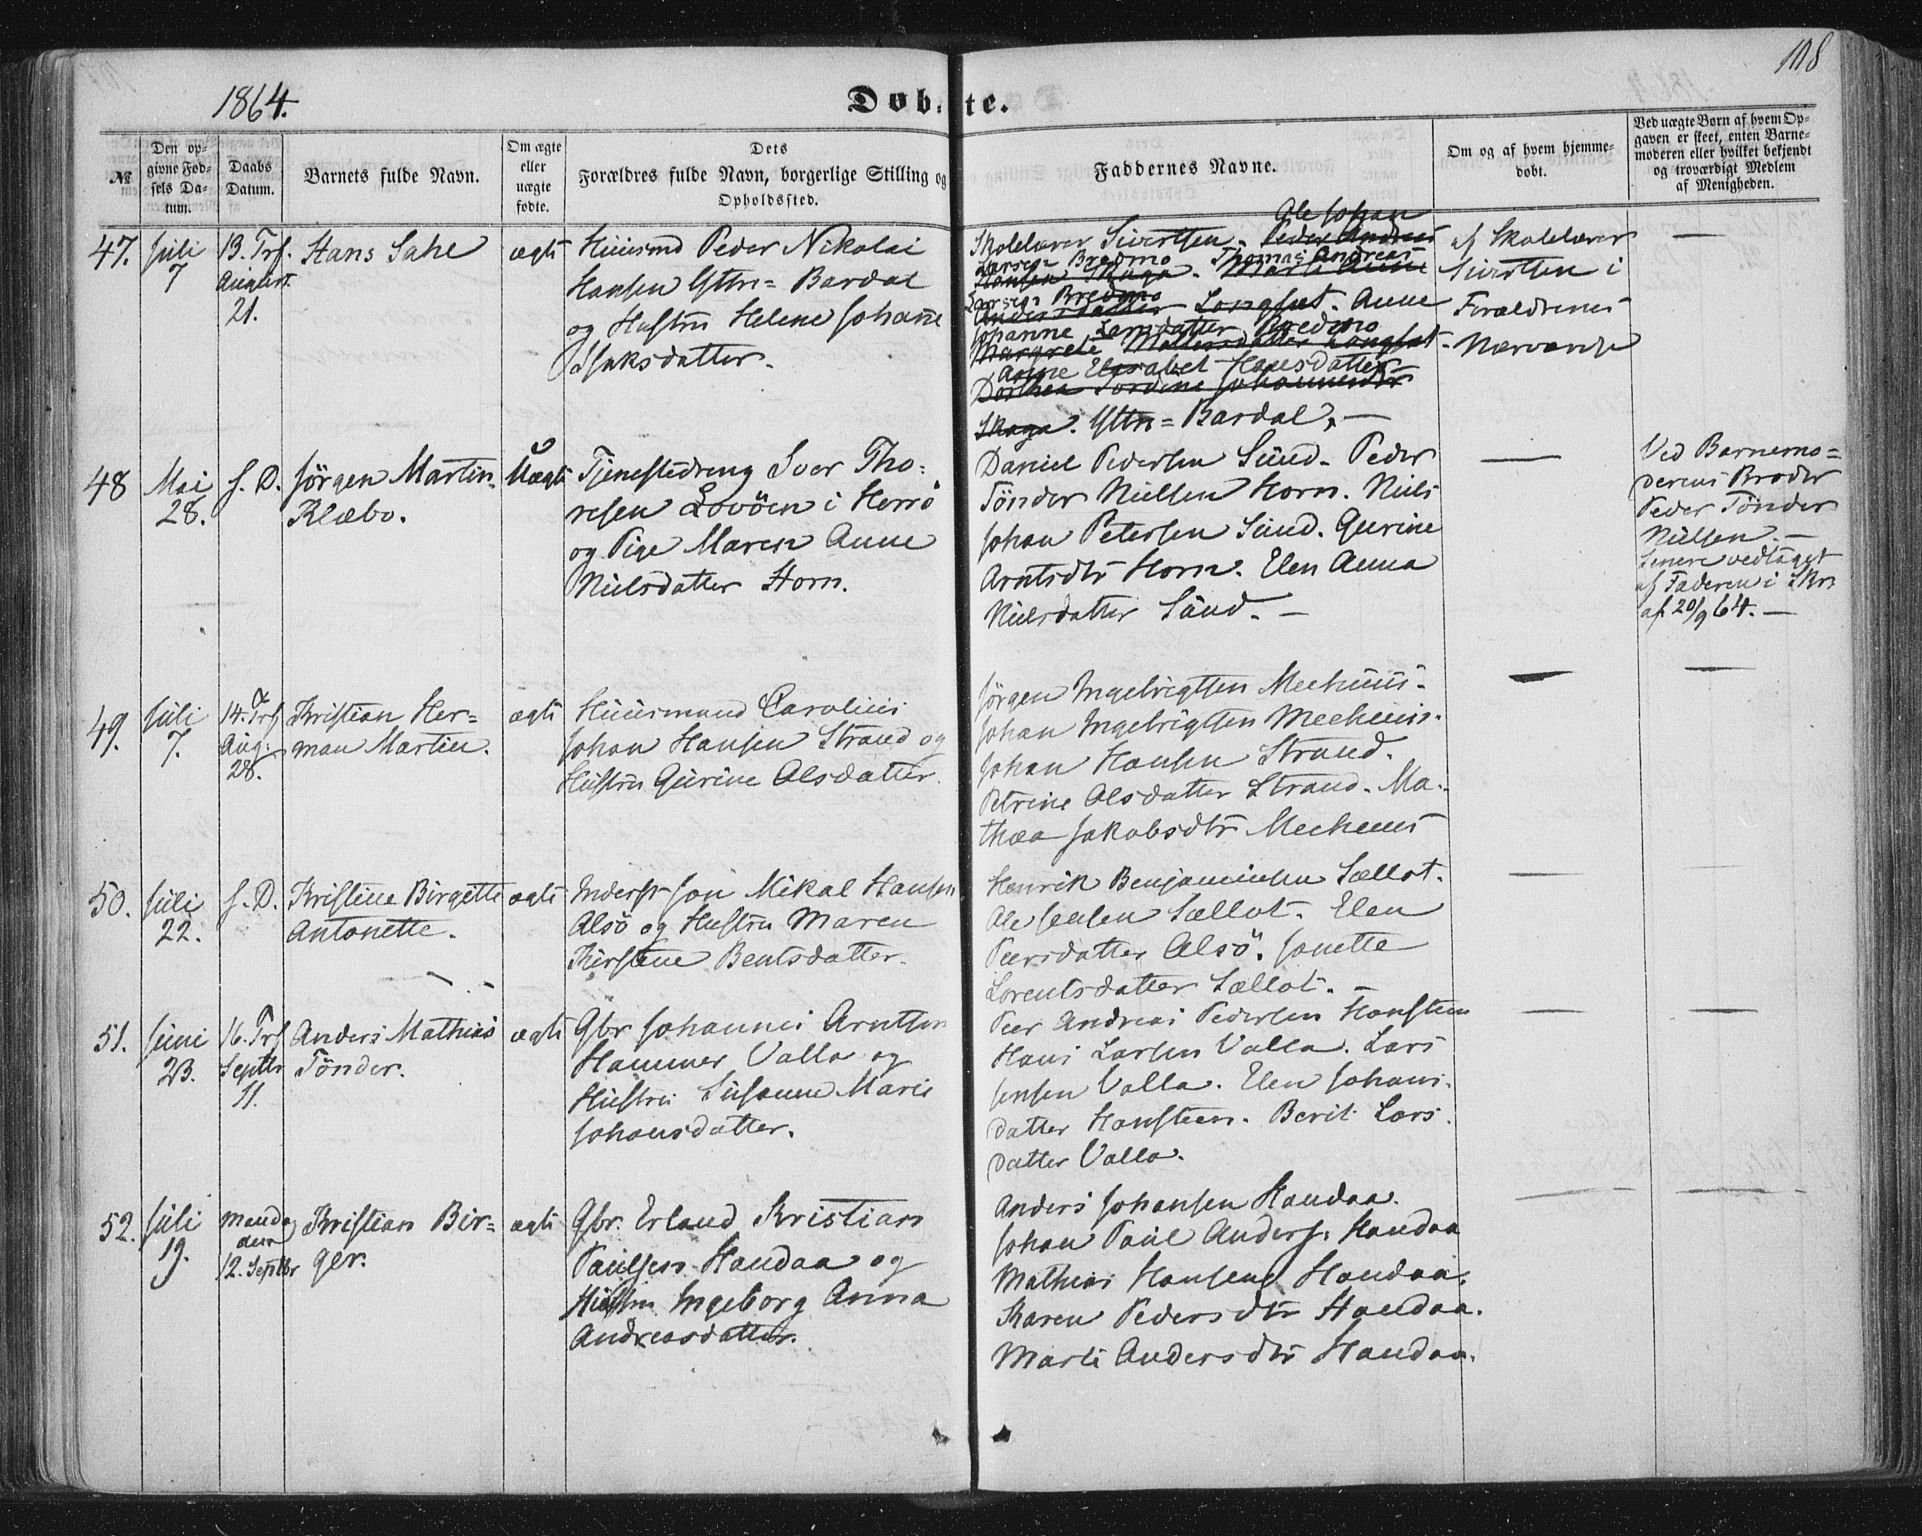 1864.
Døbte.
108
№
Den opgivne Fødsels Datum.
Daabs Datum.
Barnets fulde Navn.
Om ægte eller uægte fødte.
Dets Forældres fulde Navn, borgerlige Stilling og Opholdssted.
Faddernes Navne.
Om og af hvem hjemmedøbt.
Ved uægte Børn af hvem Opgaven er skeet, enten Barnemoderen eller hvilket bekjendt og troværdigt Medlem af Menigheden.
47. Juli 7
13. Trf. August 21.
Hans Sahe
ægte
Huusmd Peder Nikolai
Hansen Yttre=Bardal
og Hustru Helene Johanne
Isaksdatter.
Ole Johan
Skolelærer Sivertsen. Peder Andreas
Larsen Bredmo Thomas Andreas
Hansen Skaga. Marte Anne
Larsen Bredmo
Andersdatter Longset. Anne
Johanne Larsdatter Bredmo
Margrete Mathisdatter Longset.
Anne Elisabet Hansdatter
Dorthea Johannesdtr
Skaga. Yttre=Bardal. —
af Skolelærer
Sivertsen i
Forældrenes
Nærværelse
—
48 Mai 28.
s. D.
Jørgen Martin
Klæbo.
Uægte
Tjenestedreng Iver Tho-
resen Lovöen i Herrö
og Pige Maren Anne
Nielsdatter Horn.
Daniel Pedersen Sund. Peder
Tönder Nielsen Horn. Niels
Johan Petersen Sund. Gurine
Arntsdtr Horn. Elen Anna
Nielsdatter Sund. —
—
Ved Barnemo=
derens Broder
Peder Tönder
Nielsen. —
Senere vedtaget
af Faderen i Skr.
af 20/9 64. —
49. Juli 7.
14. Trf Aug: 28.
Kristian Her=
man Martin.
ægte
Huusmand Carolius
Johan Hansen Strand og
Hustru Gurine Olsdatter.
Jørgen Ingebrigtsen Meehuus.
Johan Ingebrigtsen Meehuus.
Johan Hansen Strand.
Petrine Olsdatter Strand. Ma-
thea Jakobsdtr Meehuus
—
—
50. Juli 22.
s. D.
Kristine Birgitte
Antonette.
ægte
Inderst Jon Mikal Hansen
Alsö og Hustru Maren
Kirstine Bentsdatter.
Henrik Benjaminsen Sællot.
Ole Jensen Sællot. Elen
Peersdatter Alsö. Jonette
Lorentsdatter Sællot. —
—
51. Juni 23.
16. Trf Septbr 11.
Anders Mathias
Tönder.
ægte
Gbr Johannes Arntsen
Hammer Valla og
Hustru Susanne Marie
Johansdatter.
Peer Andreas Pedersen Hansteen
Hans Larsen Valla. Lars
Jensen Valla. Elen Johans-
datter Hansteen. Berit Lars-
datter Valla.
—
—
52. Juli 19.
Mandagen 12. Septbr
Kristian Bir=
ger.
ægte
Gbr. Erland Kristian
Paulsen Handaa og
Hustru Ingeborg Anna
Andreasdatter.
Anders Johansen Handaa.
Johan Paul Anders: Handaa
Mathias Hansen Handaa.
Karen Pedersdtr Handaa.
Marte Andersdtr Handaa.
—
—